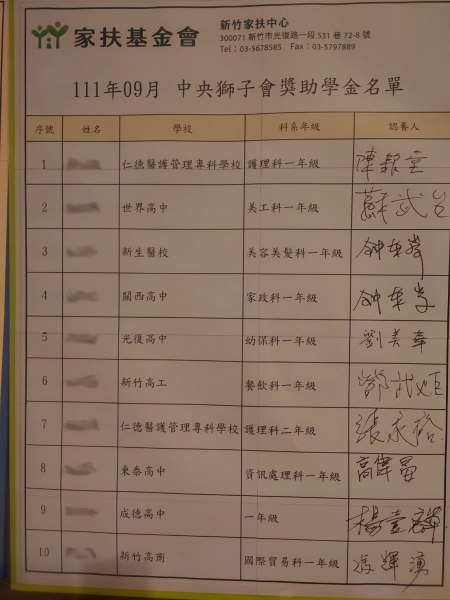 家扶基金會
新竹家扶中心
300071 新竹市光復路一段 531 巷 72-8 號
Tel：03-5678585 Fax：03-5797889
111年09月 中央獅子會獎助學金名單
序號 姓名 學校 科系年級 認養人
1 仁德醫護管理專科學校 護理科一年級
2 世界高中 美工科一年級 蘇武台
3 新生醫校 美容美髮科一年級
4 關西高中 家政科一年級
5 光復高中 幼保科一年級 劉美章
6 新竹高工 餐飲科一年級
7 仁德醫護管理專科學校 護理科二年級 張永裕
8 東泰高中 資訊處理科一年級 高偉晏
9 成德高中 一年級
10 新竹高商 國際貿易科一年級 馮輝湧